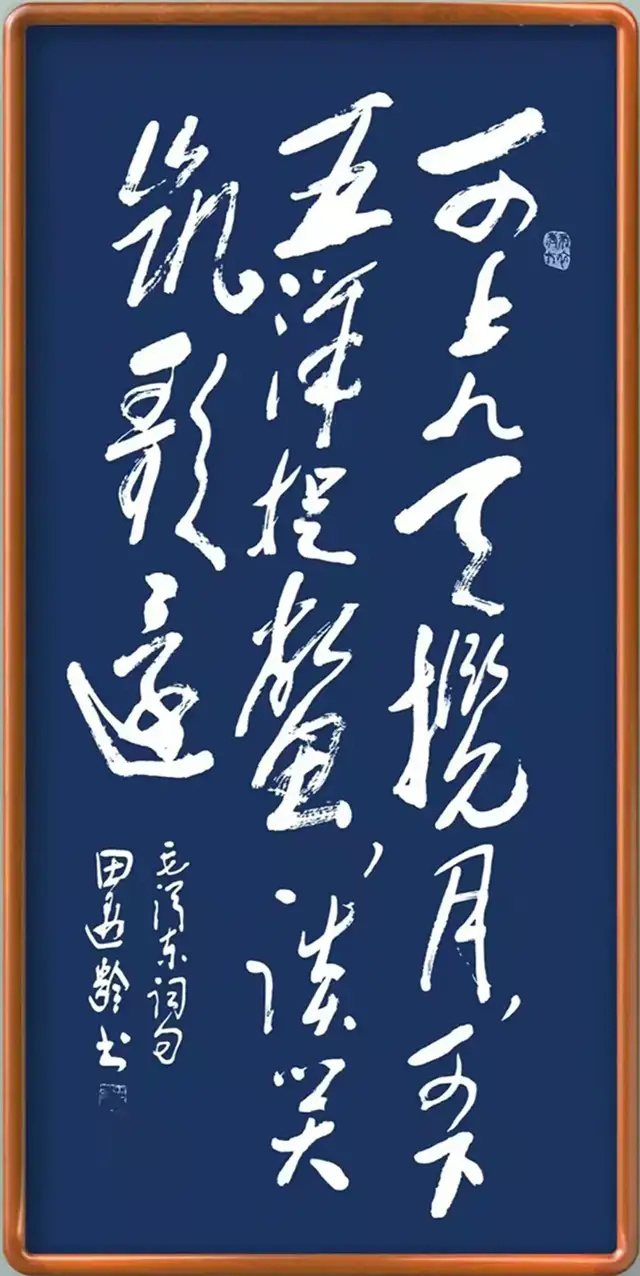 可上九天攬月，可下
五洋捉鱉，谈笑
凯歌還
毛泽东词句
田遐齡书